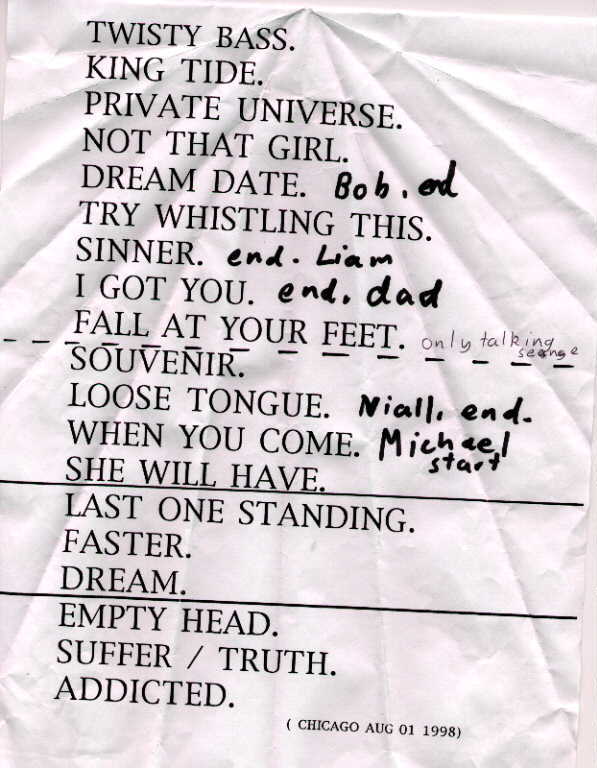 TWISTY BASS.
KING TIDE.
PRIVATE UNIVERSE.
NOT THAT GIRL.
DREAM DATE. Bob. end
TRY WHISTLING THIS.
SINNER. end. Liam
I GOT YOU. end. dad
FALL AT YOUR FEET. only talking
seange
SOUVENIR.
LOOSE TONGUE. Niall. end.
WHEN YOU COME. Michael
start
SHE WILL HAVE.
LAST ONE STANDING.
FASTER.
DREAM.
EMPTY HEAD.
SUFFER / TRUTH.
ADDICTED.
( CHICAGO AUG 01 1998)